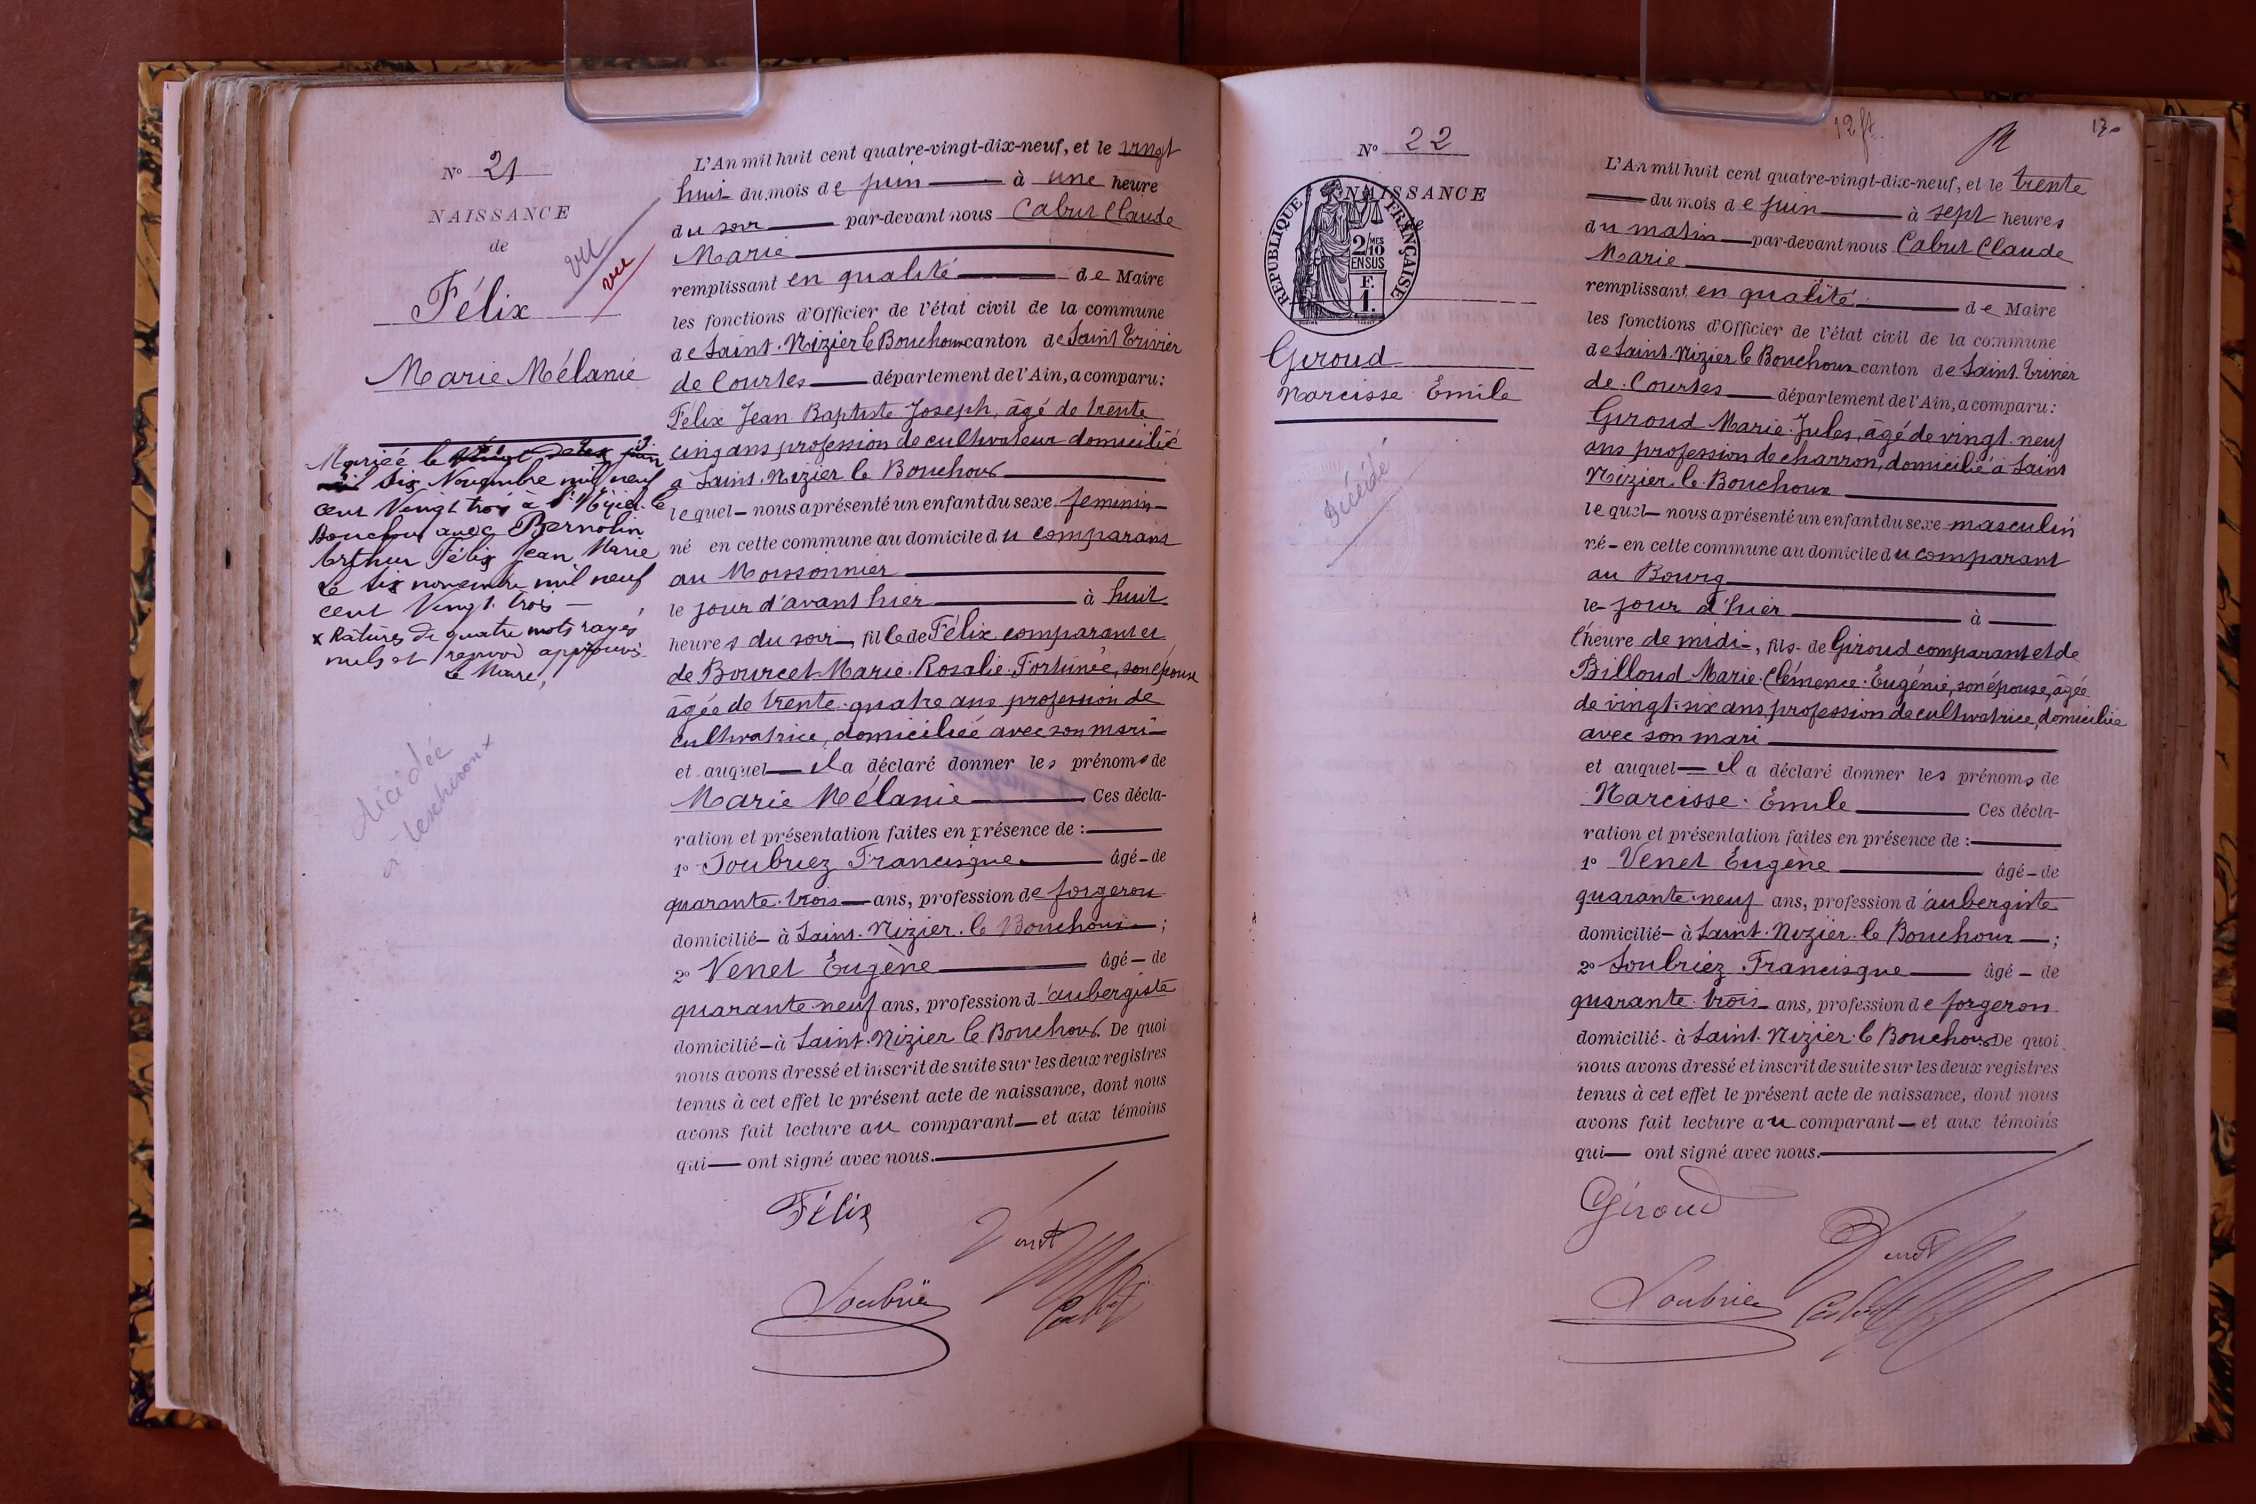 N° 21
NAISSANCE
de
Félix
Marie Mélanie
vu
vu
Mariée le vingt deux juin
dix Novembre mil neuf
cent vingt trois à St Nizier le
Bouchoux avec Bernolin
Arthur Félix Jean Marie
Le dix novembre mil neuf
cent vingt trois —
x Ratures de quatre mots rayés
nuls et renvoi approuvés
Le Maire,
décédée
à Lescheroux
L'An mil huit cent quatre-vingt-dix-neuf, et le vingt
huit du mois de juin — à une heure
du soir — par-devant nous Cabut Claude
Marie —
remplissant en qualité — de Maire
les fonctions d'Officier de l'état civil de la commune
de Saint-Nizier le Bouchoux canton de Saint Trivier
de Courtes — département de l'Ain, a comparu :
Félix Jean Baptiste Joseph, âgé de trente
cinq ans profession de cultivateur domicilié
à Saint-Nizier le Bouchoux —
lequel — nous a présenté un enfant du sexe feminin —
né en cette commune au domicile du comparant
au Moissonnier —
le jour d'avant hier — à huit
heures du soir —, fille de Félix comparant et
de Bourcet Marie-Rosalie-Fortunée, son épouse
âgée de trente-quatre ans profession de
cultivatrice, domiciliée avec son mari —
et auquel — il a déclaré donner les prénoms de
Marie Mélanie — Ces décla-
ration et présentation faites en présence de : —
1° Soubriez Francisque — âgé — de
quarante-trois — ans, profession de forgeron
domicilié — à Saint-Nizier-le Bouchoux — ;
2° Venet Eugène — âgé — de
quarante-neuf ans, profession d'aubergiste
domicilié — à Saint-Nizier le Bouchoux. De quoi
nous avons dressé et inscrit de suite sur les deux registres
tenus à cet effet le présent acte de naissance, dont nous
avons fait lecture au comparant — et aux témoins
qui — ont signé avec nous. —
Félix
Venet
Soubriez
Cabut
12 ft.
N° 22
NAISSANCE
de
RÉPUBLIQUE FRANÇAISE
2/10 MES
EN SUS
F.
1.
Giroud
Narcisse Émile
Décédé
L'An mil huit cent quatre-vingt-dix-neuf, et le trente
— du mois de juin — à sept heures
du matin — par-devant nous Cabut Claude
Marie —
remplissant en qualité — de Maire
les fonctions d'Officier de l'état civil de la commune
de Saint-Nizier le Bouchoux canton de Saint-Trivier
de-Courtes — département de l'Ain, a comparu :
Giroud Marie-Jules, âgé de vingt-neuf
ans profession de charron, domicilié à Saint
Nizier-le-Bouchoux —
lequel — nous a présenté un enfant du sexe masculin
né — en cette commune au domicile du comparant
au Bourg —
le — jour d'hier — à —
l'heure de midi —, fils — de Giroud comparant et de
Billoud Marie-Clémence-Eugénie, son épouse, âgée
de vingt-six ans, profession de cultivatrice, domiciliée
avec son mari —
et auquel — il a déclaré donner les prénoms de
Narcisse-Émile — Ces décla-
ration et présentation faites en présence de : —
1° Venet Eugène — âgé — de
quarante-neuf ans, profession d'aubergiste
domicilié — à Saint-Nizier-le Bouchoux — ;
2° Soubriez-Francisque — âgé — de
quarante-trois — ans, profession de forgeron
domicilié — à Saint-Nizier-le Bouchoux De quoi
nous avons dressé et inscrit de suite sur les deux registres
tenus à cet effet le présent acte de naissance, dont nous
avons fait lecture au comparant — et aux témoins
qui — ont signé avec nous. —
Giroud
Venet
Soubriez
Cabut